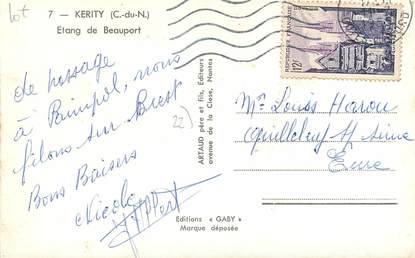 lot
7 — KERITY (C.-du-N.)
Etang de Beauport
de passage
à Paimpol, nous
filons sur Brest
Bons Baisers
Nicole
22
ARTAUD père et fils, Éditeurs
avenue de la Close, Nantes
Editions « GABY »
Marque déposée
RÉPUBLIQUE FRANÇAISE
12F
Mr Louis
Quillebeuf s/ Seine
Eure